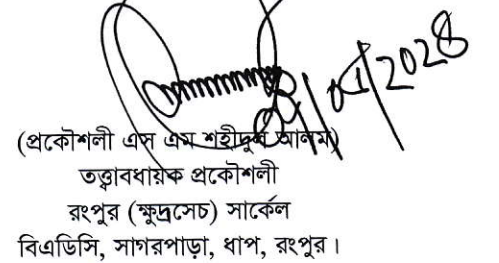 (প্রকৌশলী এস এম শহীদুল আলম)
তত্ত্বাবধায়ক প্রকৌশলী
রংপুর (ক্ষুদ্রসেচ) সার্কেল
বিএডিসি, সাগরপাড়া, ধাপ, রংপুর।